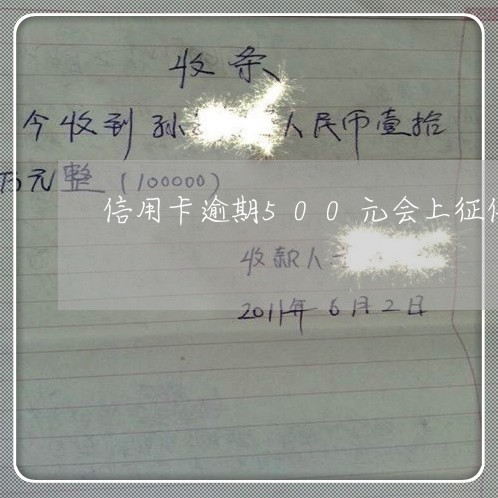 收条
今收到孙 人民币壹拾
万元整(100000)
信用卡逾期500元会上征
收款人
2011年6月2日